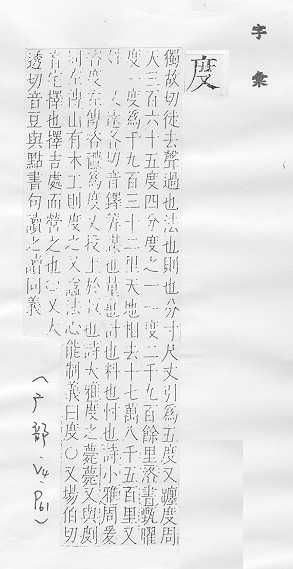 字彙
度
獨故切徒去聲過也法也則也分寸尺丈引為五度又躔度周
天三百六十五度四分度之一一度二千九百餘里洛書甄曜
度一度為千九百三十二里天地相去十七萬八千五百里又
又達各切音鐸算謀也量也計也料也忖也詩小雅周爰
咨度左傳咨禮為度又投土於也詩大雅度之薨薨又與劇
同左傳山有木工則度之又諡法心能制義曰度○又場伯切
音宅擇也擇吉處而營之也○又大
透切音豆與點書句讀之讀同義
(广部,V4,P61)